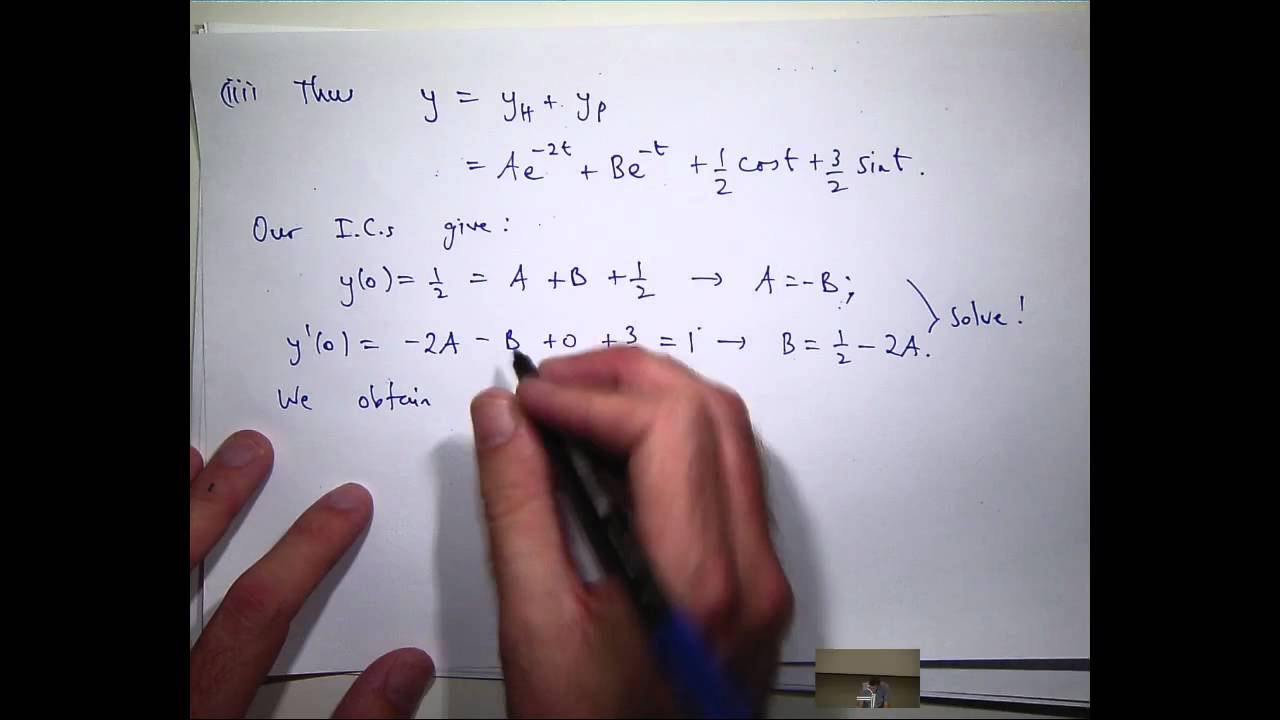 (iii) Thus y = y_H + y_P
= Ae^{-2t} + Be^{-t} + 1/2 cos t + 3/2 sin t.
Our I.C.s give:
y(0) = 1/2 = A + B + 1/2 → A = -B;
y'(0) = -2A - B + 0 + 3 = 1 → B = 1/2 - 2A.
Solve!
We obtain